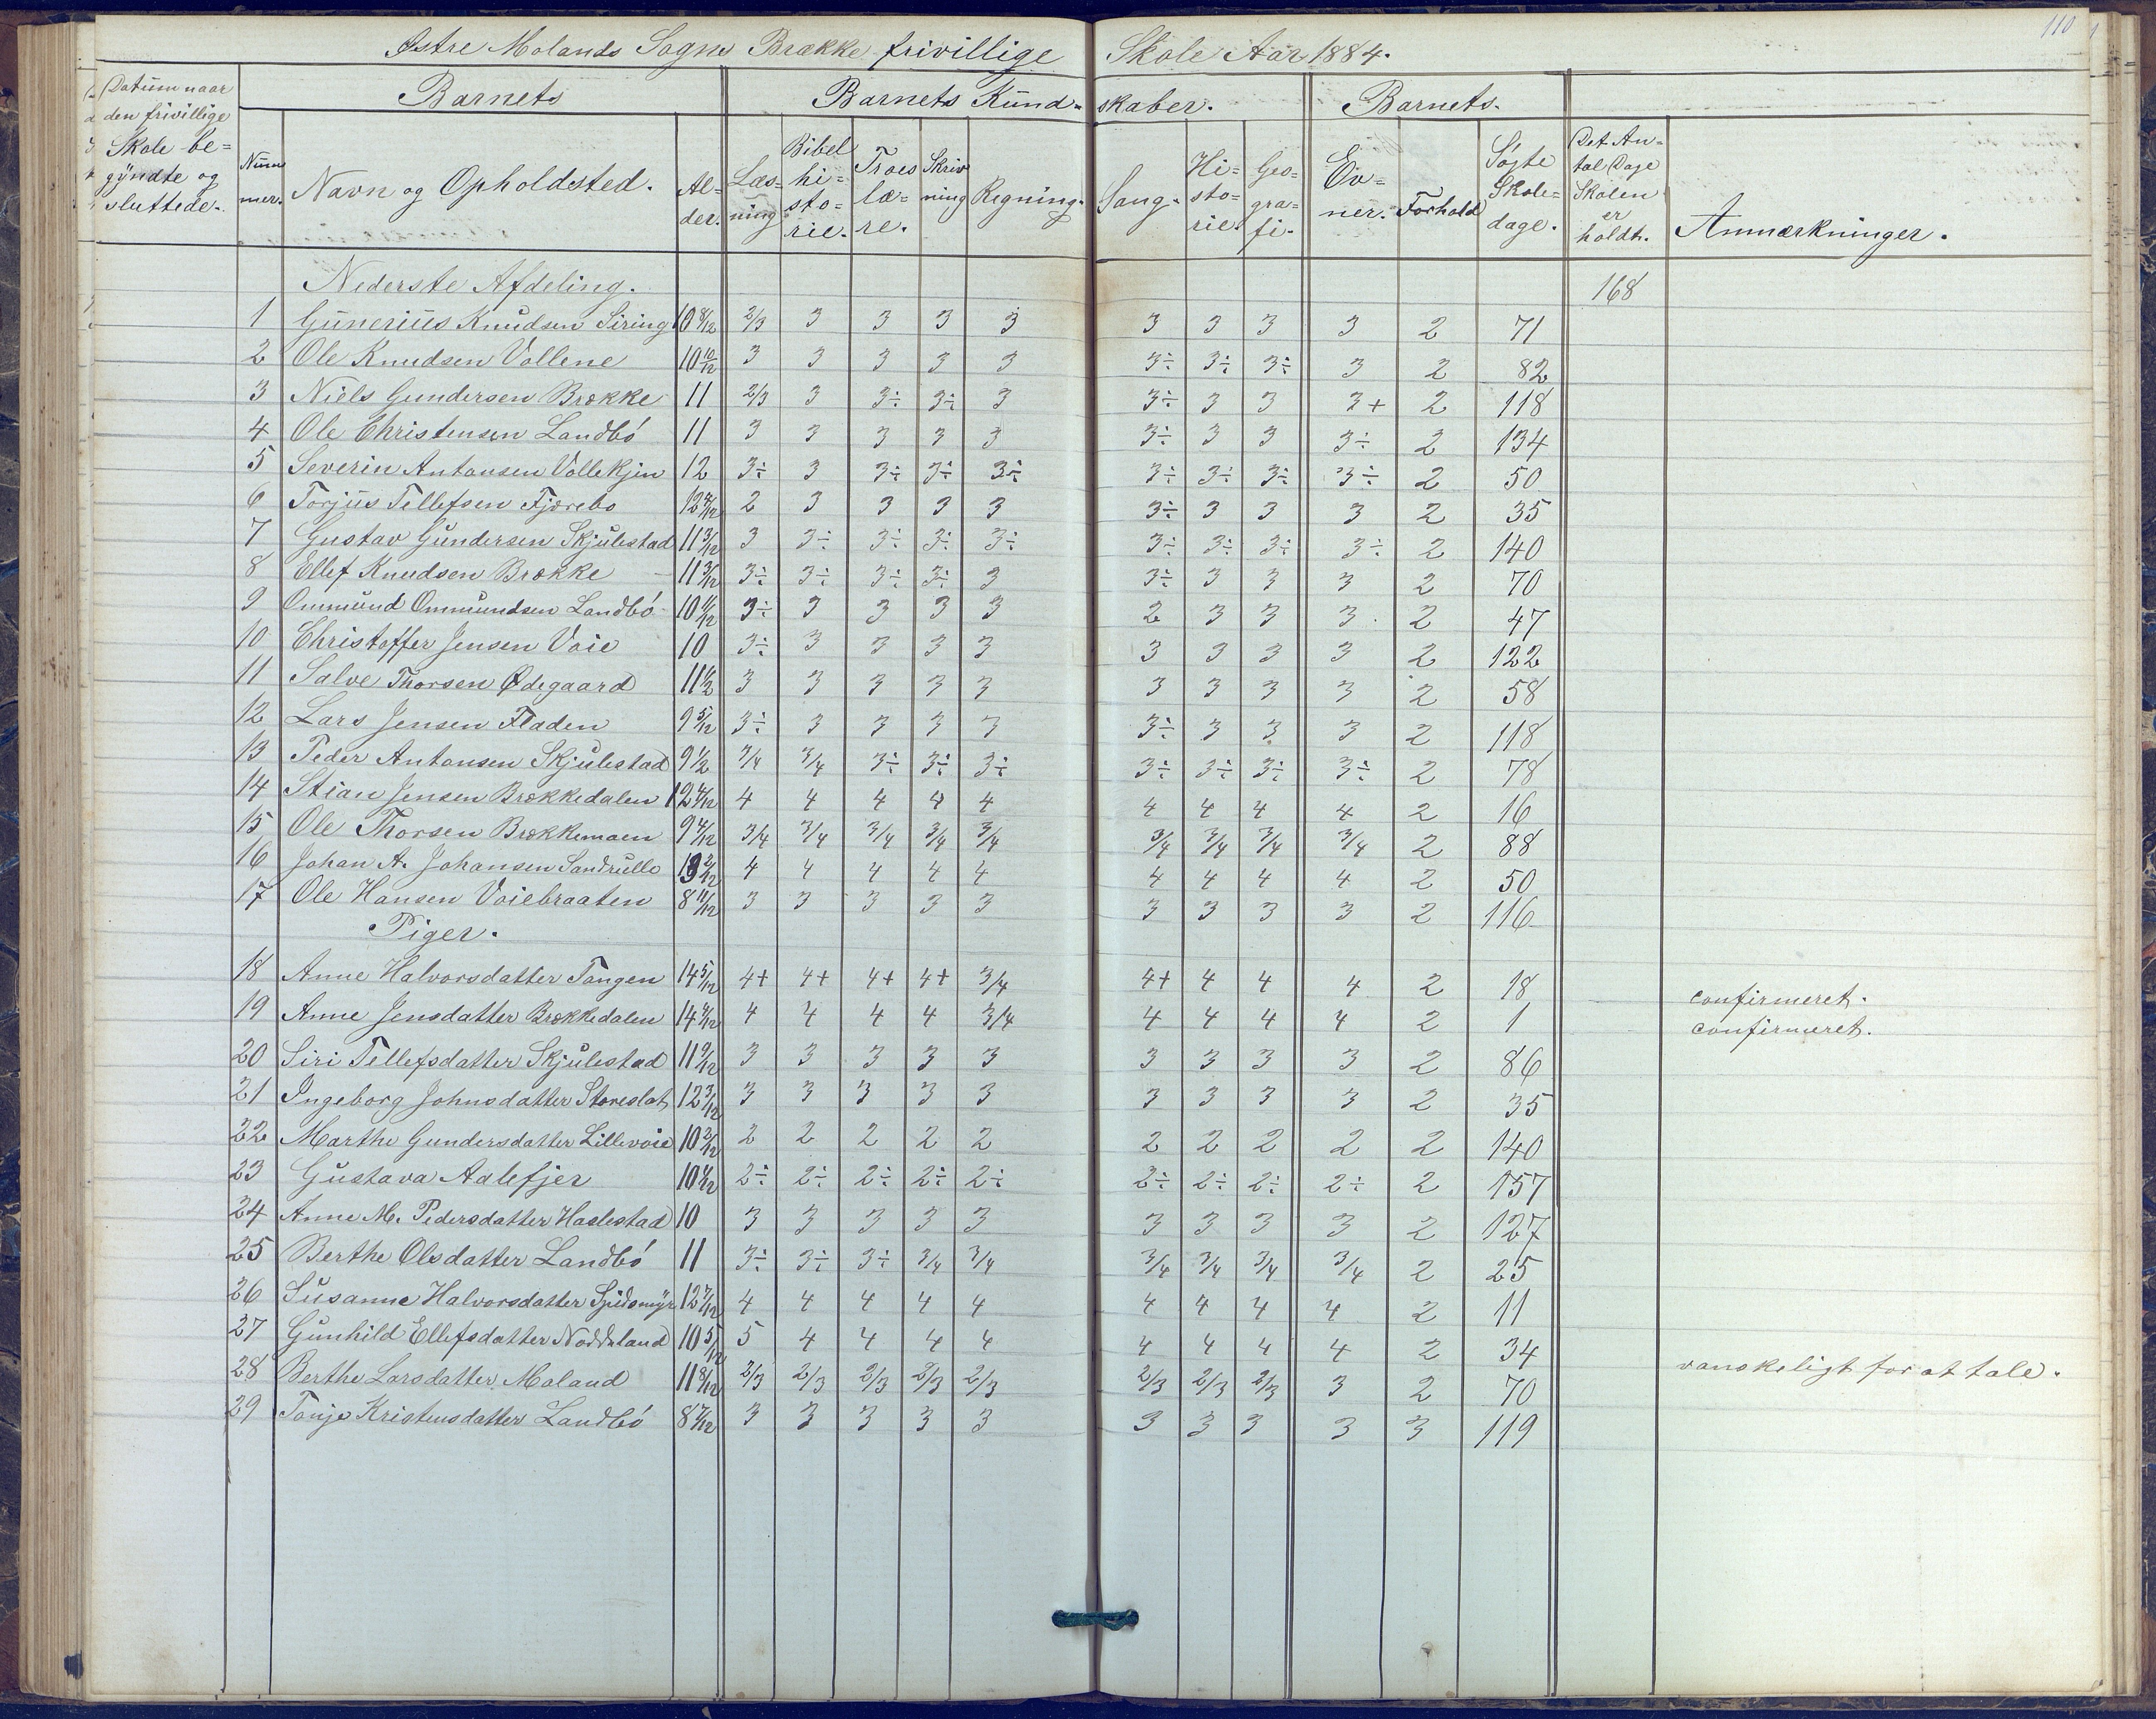 110
Østre Molands Sogns Brække frivillige Skole Aar 1884.
Datum naar den frivillige Skole be= gyndte og sluttede. | Barnets | Barnets Kund= skaber. | Barnets.
Num mer. | Navn og Opholdsted. | Al= der. | Læs= ning | Bibel hi= sto= rie. | Troes læ= re. | Skriv ning | Regning. | Sang. | Hi= sto= rie. | Geo= gra= fi. | Ev= ner. | Forhold | Søgte Skole= dage. | Det An= tal Dage Skolen er holdt. | Anmærkninger.
Nederste Afdeling. 168
1 Gunerius Knudsen Siring 10 8/12 2/3 3 3 3 3 3 3 3 3 2 71
2 Ole Knudsen Vollene 10 10/12 3 3 3 3 3 3÷ 3÷ 3÷ 3 2 82
3 Niels Gundersen Brække 11 2/3 3 3÷ 3÷ 3 3÷ 3 3 3+ 2 118
4 Ole Christensen Landbö 11 3 3 3 3 3 3÷ 3 3 3÷ 2 134
5 Severin Antonsen Vollekjin 12 3÷ 3 3÷ 3÷ 3÷ 3÷ 3÷ 3÷ 3÷ 2 50
6 Torjus Tellefsen Fjærebo 12 4/12 2 3 3 3 3 3÷ 3 3 3 2 35
7 Gustav Gundersen Skjulestad 11 3/12 3 3÷ 3÷ 3÷ 3÷ 3÷ 3÷ 3÷ 3÷ 2 140
8 Ellef Knudsen Brække 11 3/12 3÷ 3÷ 3÷ 3÷ 3 3÷ 3 3 3 2 70
9 Ommund Ommundsen Landbö 10 11/12 3÷ 3 3 3 3 2 3 3 3 2 47
10 Christoffer Jensen Voie 10 3÷ 3 3 3 3 3 3 3 3 2 122
11 Salve Thorsen Ødegaard 11 1/2 3 3 3 3 3 3 3 3 3 2 58
12 Lars Jensen Fladen 9 5/12 3÷ 3 3 3 3 3÷ 3 3 3 2 118
13 Peder Antonsen Skjulestad 9 1/2 3/4 3/4 3÷ 3÷ 3÷ 3÷ 3÷ 3÷ 3÷ 2 78
14 Stian Jensen Brækkedalen 12 4/12 4 4 4 4 4 4 4 4 4 2 16
15 Ole Thorsen Brækkemoen 9 4/12 3/4 3/4 3/4 3/4 3/4 3/4 3/4 3/4 3/4 2 88
16 Johan A. Johansen Sandrulle 13 2/12 4 4 4 4 4 4 4 4 4 2 50
17 Ole Hansen Voiebraaten 8 11/12 3 3 3 3 3 3 3 3 3 2 116
Piger.
18 Anne Halvorsdatter Tangen 14 5/12 4+ 4+ 4+ 4+ 3/4 4+ 4 4 4 2 18 confirmeret.
19 Anne Jensdatter Brækkedalen 14 4/12 4 4 4 4 3/4 4 4 4 4 2 1 confirmeret.
20 Siri Tellefsdatter Skjulestad 11 9/12 3 3 3 3 3 3 3 3 3 2 86
21 Ingeborg Johnsdatter Storeslot 12 3/12 3 3 3 3 3 3 3 3 3 2 35
22 Marthe Gundersdatter Lillevoie 10 2/12 2 2 2 2 2 2 2 2 2 2 140
23 Gustava Aalefjer 10 2÷ 2÷ 2÷ 2÷ 2÷ 2÷ 2÷ 2÷ 2÷ 2 157
24 Anne M. Pedersdatter Haslestad 10 3 3 3 3 3 3 3 3 3 2 127
25 Berthe Olsdatter Landbö 11 3÷ 3÷ 3÷ 3/4 3/4 3/4 3/4 3/4 3/4 2 25
26 Susanne Halvorsdatter Spidsmyr 12 7/12 4 4 4 4 4 4 4 4 4 2 11
27 Gunhild Ellefsdatter Noddeland 10 5/12 5 4 4 4 4 4 4 4 4 2 34
28 Berthe Larsdatter Moland 11 8/12 2/3 2/3 2/3 2/3 2/3 2/3 2/3 2/3 3 2 70 vanskeligt for at tale.
29 Tonje Kristensdatter Landbö 8 7/12 3 3 3 3 3 3 3 3 3 3 119